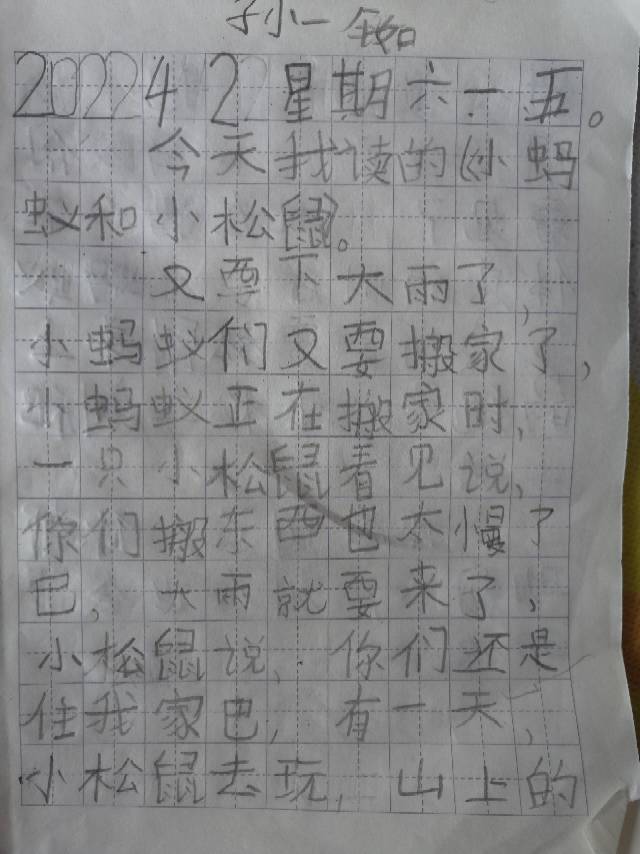 孙小一
2022 4 22 星期六一五。
今天我读的《小蚂
蚁和小松鼠》。
又要下大雨了,
小蚂蚁们又要搬家了,
小蚂蚁正在搬家时,
一只小松鼠看见说,
你们搬东西也太慢了
巴,大雨就要来了,
小松鼠说,你们还是
住我家巴,有一天,
小松鼠去玩,山上的